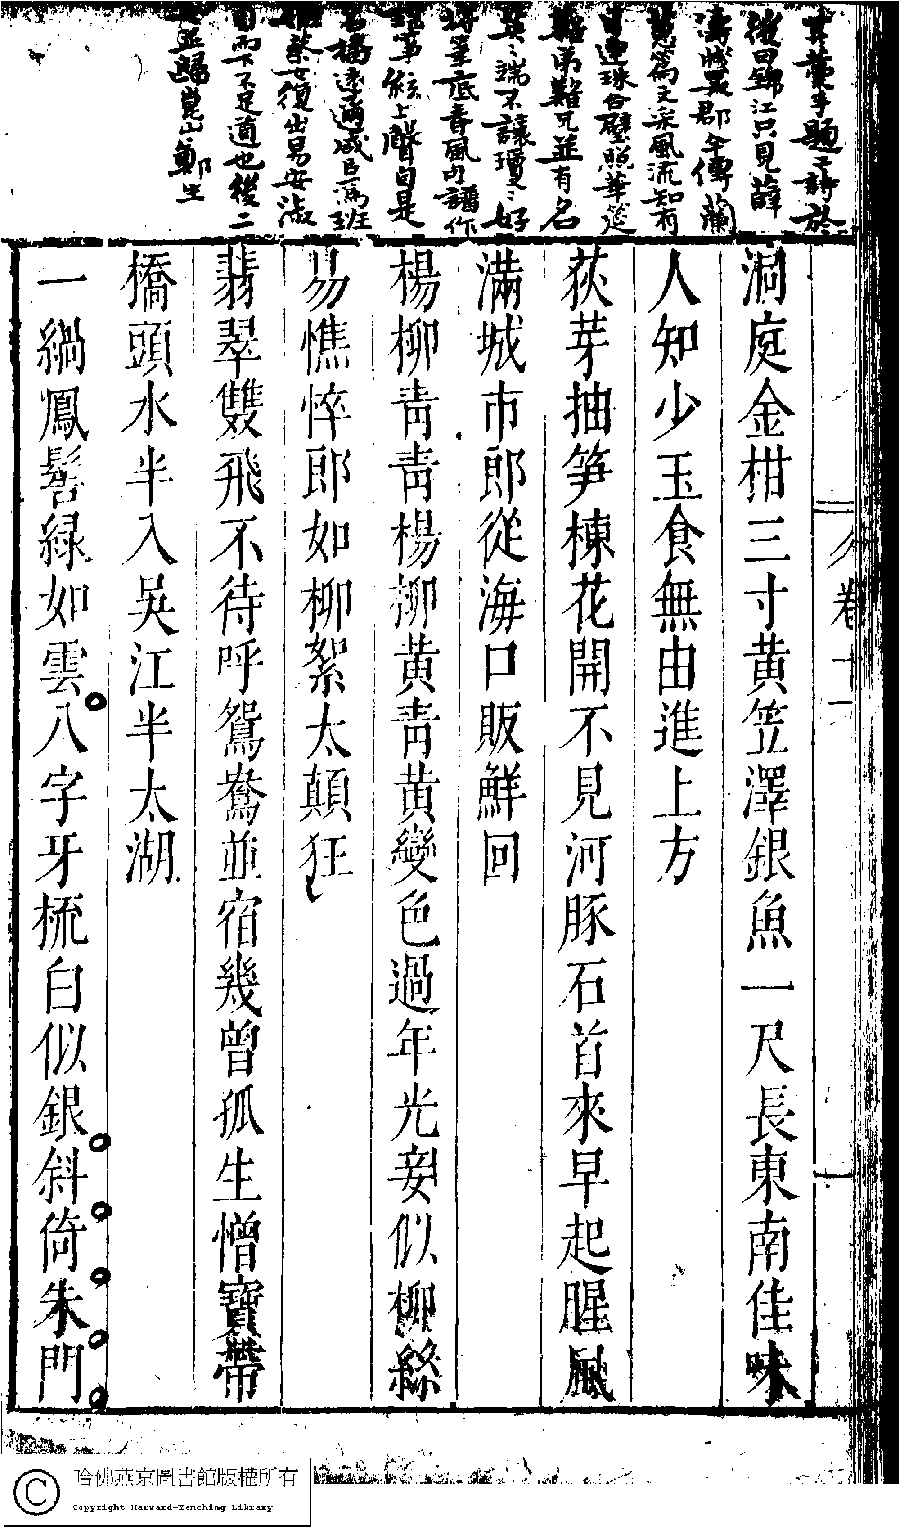 其藁于題其詩於
後曰錦江只見薛
濤牋吳郡今傳蘭
蕙篇文采風流知有
日連珠合璧照華筵
難弟難兄並有名
英英端不讓瓊瓊好
將筆底春風句譜作
瑤箏絃上聲自是
名播遠邇咸以為班
姬蔡女復出易安淑
自而下不足道也後二
並歸崑山鄭生
洞庭金柑三寸黄笠澤銀魚一尺長東南佳味
人知少玉食無由進上方
荻芽抽笋楝花開不見河豚石首來早起腥風
滿城市郎從海口販鮮回
楊柳青青楊柳黄青黄變色過年光妾似柳絲
易憔悴郎如柳絮太顛狂
翡翠雙飛不待呼鴛鴦並宿幾曾孤生憎寶帶
橋頭水半入吳江半太湖
一綹鳳髻緑如雲八字牙梳白似銀斜倚朱門
卷十一
哈佛燕京圖書館版權所有
Copyright Harvard-Yenching Library